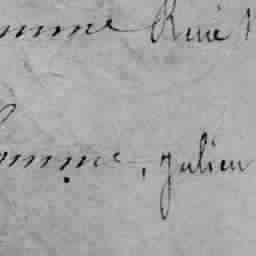 omme René
omme, Julien